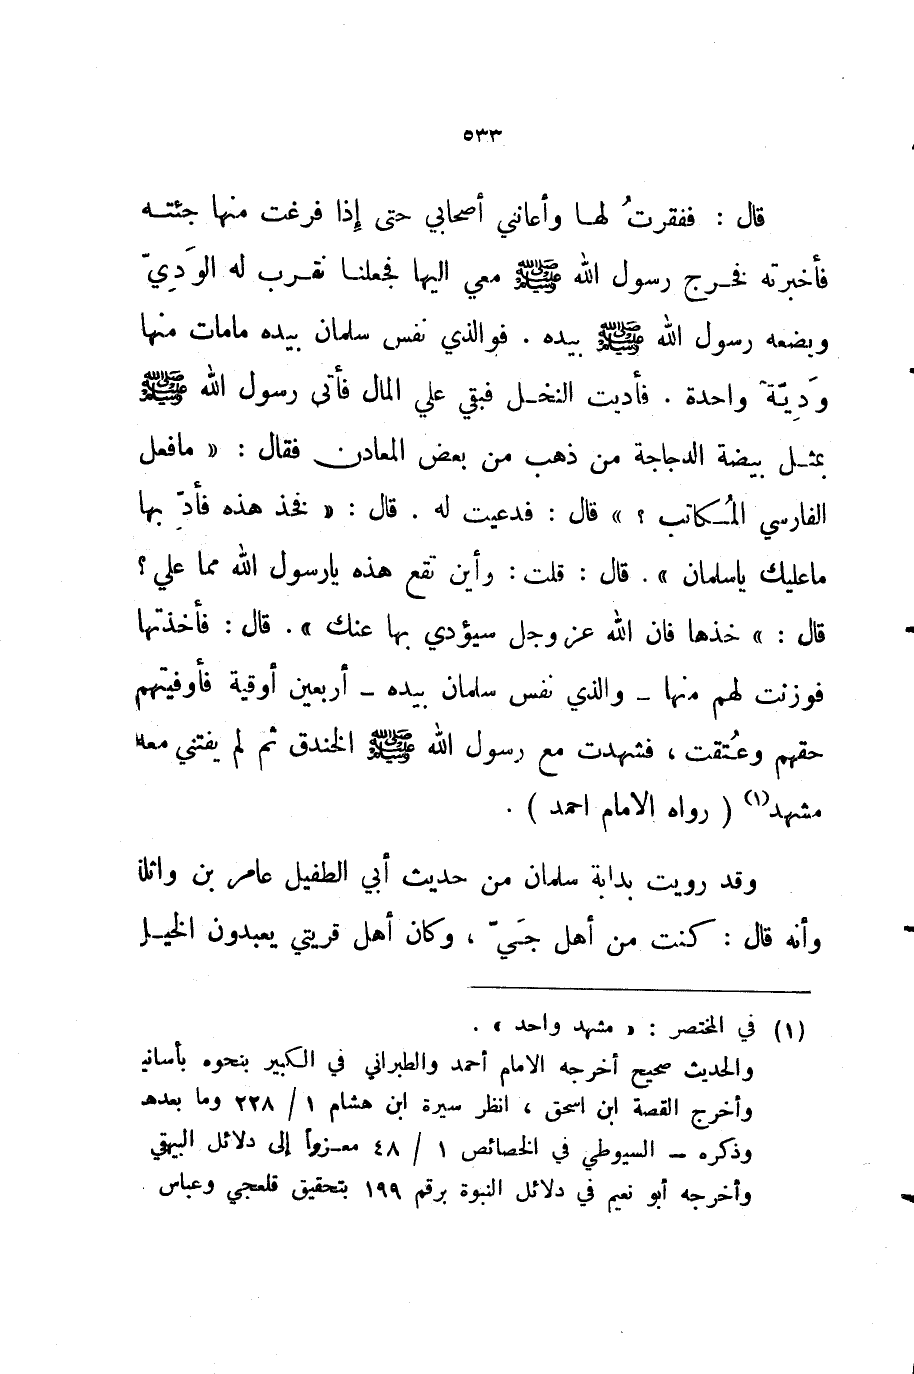 ٥٣٣
قال : ففقرتُ لهـا وأعانني أصحابي حتى إذا فرغت منها جئتـه
فأخبرته فخـرج رسول الله ﷺ معي اليها فجعلنـا نقـرب له الوَدِيّ
ويضعه رسول الله ﷺ بيده . فوالذي نفس سلمان بيده مامات منها
وَدِيّة واحدة . فأديت النخـل فبقي علي المال فأتى رسول الله ﷺ
بمثـل بيضة الدجاجة من ذهب من بعض المعادن فقال : « مافعل
الفارسي المُـكاتب ؟ » قال : فدعيت له . قال : « فخذ هذه فأدّ بها
ماعليك ياسلمان » . قال : قلت : وأين تقع هذه يارسول الله مما علي ؟
قال : » خذها فان الله عز وجل سيؤدي بها عنك » . قال : فأخذتها
فوزنت لهم منها ــ والذي نفس سلمان بيده ــ أربعين أوقية فأوفيتهم
حقهم وعُـتقت ، فشهدت مع رسول الله ﷺ الخندق ثم لم يفتني معه
مشهد(١) ( رواه الامام احمد ) .
وقد رويت بداية سلمان من حديث أبي الطفيل عامر بن
وأنه قال : كنت من أهل جَيّ ، وكان أهل قريتي يعبدون
(١) في المختصر : « مشهد واحد » .
والحديث صحيح أخرجه الامام أحمد والطبراني في الكبير بنحوه
وأخرج القصة ابن اسحق ، انظر سيرة ابن هشام ١ / ٢٢٨ وما
وذكره ــ السيوطي في الخصائص ١ / ٤٨ معـزواً إلى دلائل البيهقي
وأخرجه أبو نعيم في دلائل النبوة برقم ١٩٩ بتحقيق قلعجي وعباس .